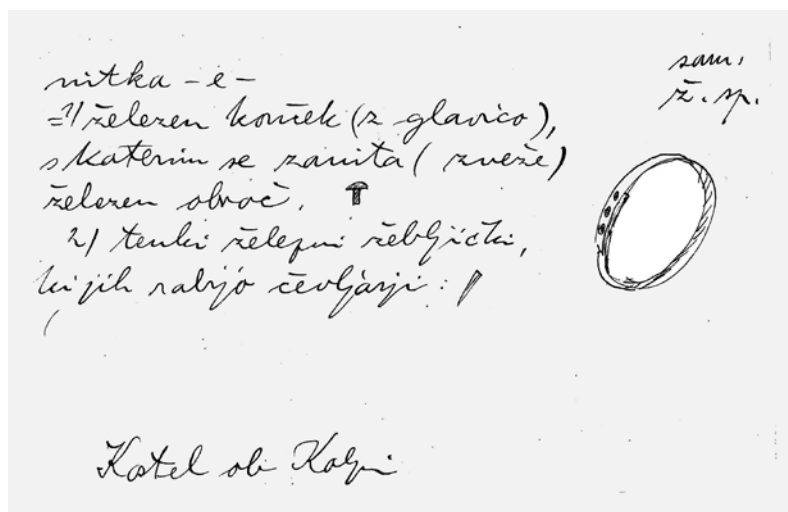 nitka -e-
sam.
ž. sp.
=1/ železen konček (z glavico),
s katerim se zanita (zveže)
železen obroč.
2/ tenki železni žebljički,
ki jih rabijo čevljarji:
Kostel ob Kolpi